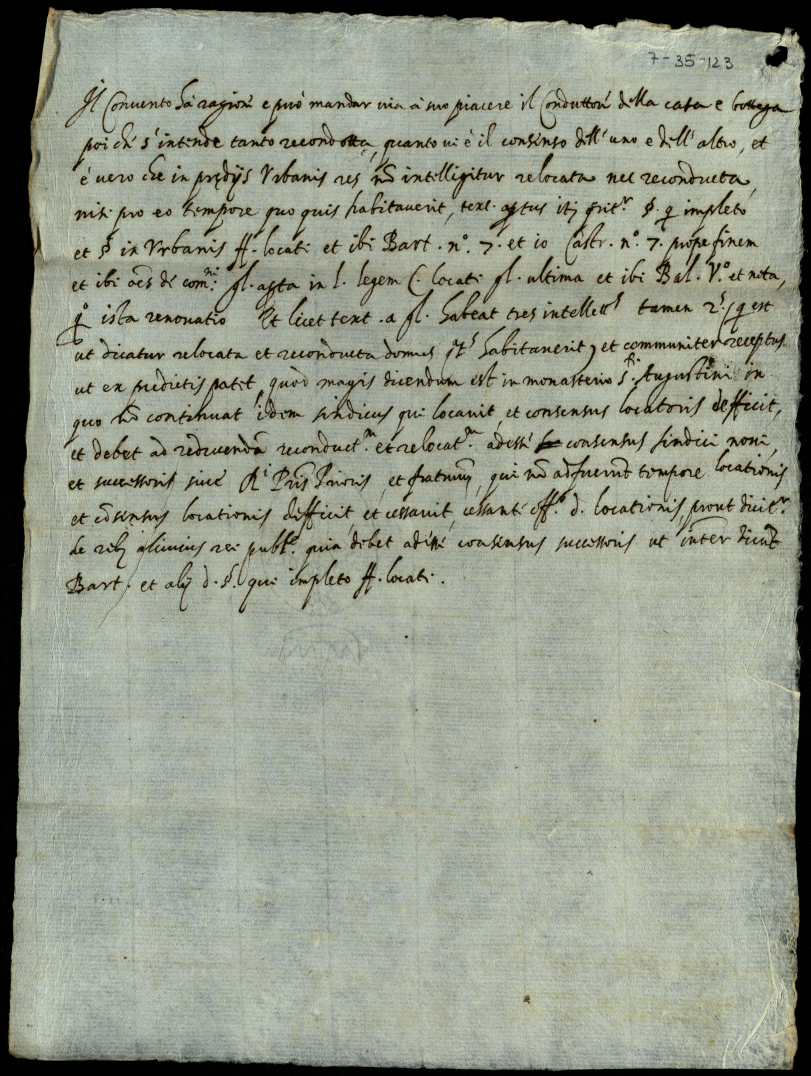 7-35-123
Il Convento hà ragione e può mandar via à suo piacere il Conduttore della casa e bottega
poiche s'intende tanto recondotta, quanto vi è il consenso dell'uno e dell'altro, et
é vero che in prędijs Vrbanis res nō intelligitur relocata nec reconducta,
nisi pro eo tempore quo quis habitaverit, text. §. q impleto
et §. in Vrbanis ff. locati et ibi Bart. nº. 7. et io Castr. nº. 7. prope finem
et ibi oēs de com.ni gl. in l. legem C. locati gl. ultima et ibi Bal. Vº. et nota,
ista renovatio Et licet text. a gl. habeat tres intellec.s tamen 2.s q est
ut dicatur relocata et reconducta domus habitaverit, et communiter receptus
ut ex predictis patet, quod magis dicendum est in monasterio s.ti Augustini in
quo nō continuat idem sindicus qui locavit, et consensus locatoris defficit,
et debet ad reducendā reconduct.m et relocat.m adesse consensus sindici novi,
et successoris sive R.i Pris Prioris, et fratrum, qui nō adfuerunt tempore locationis
et cōsensus locationis defficit, et cessavit, cessante eff.u d. locationis, prout dicit.r
de rei pub.ce quia debet adesse consensus successoris ut inter dicūt
Bart. et alij d. §. qui impleto ff. locati.